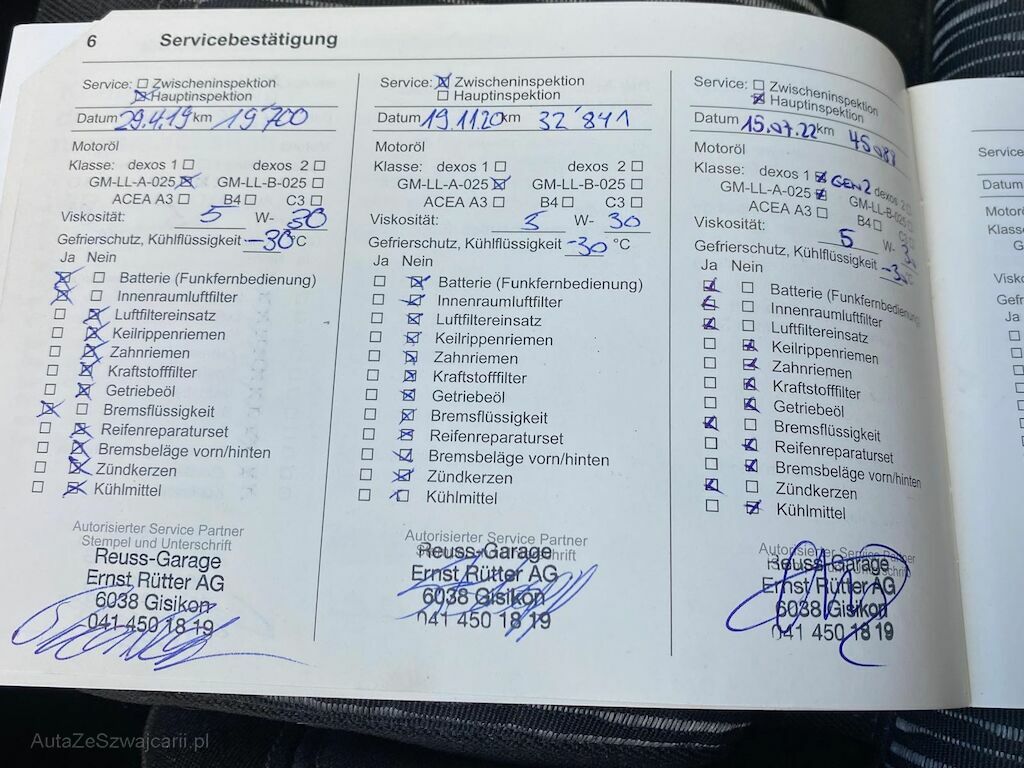 6 Servicebestätigung
Service: Zwischeninspektion
Hauptinspektion
Datum 29.4.19 km 19'700
Motoröl
Klasse: dexos 1 dexos 2
GM-LL-A-025 GM-LL-B-025
ACEA A3 B4 C3
Viskosität: 5 W- 30
Gefrierschutz, Kühlflüssigkeit -30 °C
Ja Nein
Batterie (Funkfernbedienung)
Innenraumluftfilter
Luftfiltereinsatz
Keilrippenriemen
Zahnriemen
Kraftstofffilter
Getriebeöl
Bremsflüssigkeit
Reifenreparaturset
Bremsbeläge vorn/hinten
Zündkerzen
Kühlmittel
Autorisierter Service Partner
Stempel und Unterschrift
Reuss-Garage
Ernst Rütter AG
6038 Gisikon
041 450 18 19
Service: Zwischeninspektion
Hauptinspektion
Datum 19.11.20 km 32'841
Motoröl
Klasse: dexos 1 dexos 2
GM-LL-A-025 GM-LL-B-025
ACEA A3 B4 C3
Viskosität: 5 W- 30
Gefrierschutz, Kühlflüssigkeit -30 °C
Ja Nein
Batterie (Funkfernbedienung)
Innenraumluftfilter
Luftfiltereinsatz
Keilrippenriemen
Zahnriemen
Kraftstofffilter
Getriebeöl
Bremsflüssigkeit
Reifenreparaturset
Bremsbeläge vorn/hinten
Zündkerzen
Kühlmittel
Autorisierter Service Partner
Reuss-Garage
Ernst Rütter AG
6038 Gisikon
041 450 18 19
Service: Zwischeninspektion
Hauptinspektion
Datum 15.07.22 km
Motoröl
Klasse: dexos 1 GEN2 dexos 2
GM-LL-A-025 GM-LL-B-025
ACEA A3 B4
Viskosität: 5 W-
Gefrierschutz, Kühlflüssigkeit
Ja Nein
Batterie (Funkfernbedienung)
Innenraumluftfilter
Luftfiltereinsatz
Keilrippenriemen
Zahnriemen
Kraftstofffilter
Getriebeöl
Bremsflüssigkeit
Reifenreparaturset
Bremsbeläge vorn/hinten
Zündkerzen
Kühlmittel
Autorisierter Service Partner
Reuss-Garage
Ernst Rütter AG
6038 Gisikon
041 450 18 19
Service
Datum
Klasse
Ja
AutaZeSzwajcarii.pl